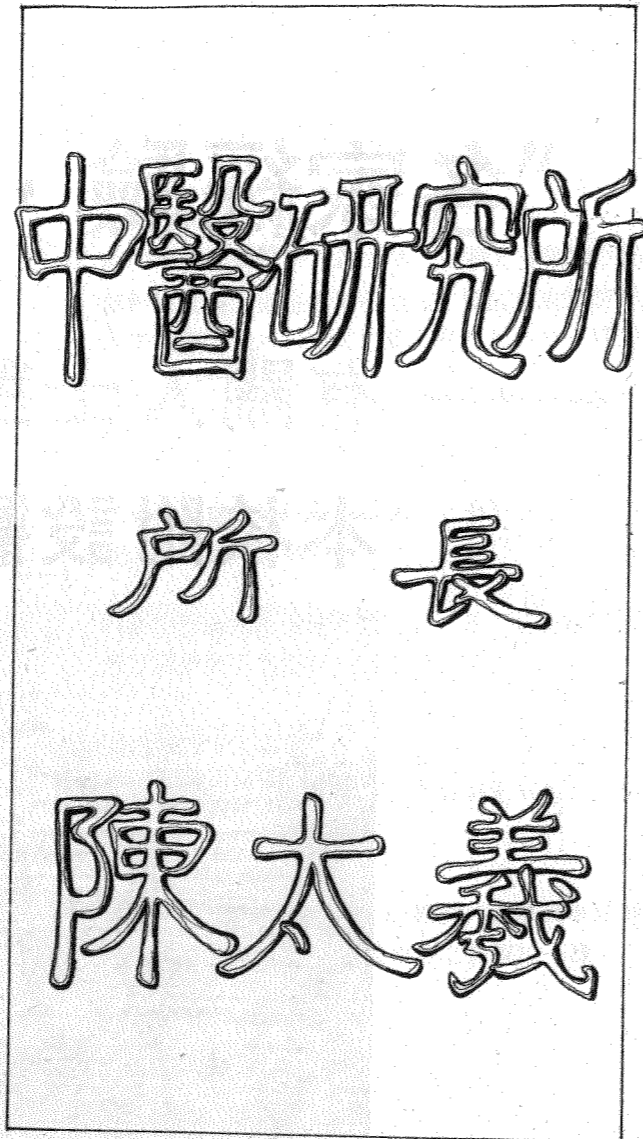 中醫研究所
所長
陳太羲